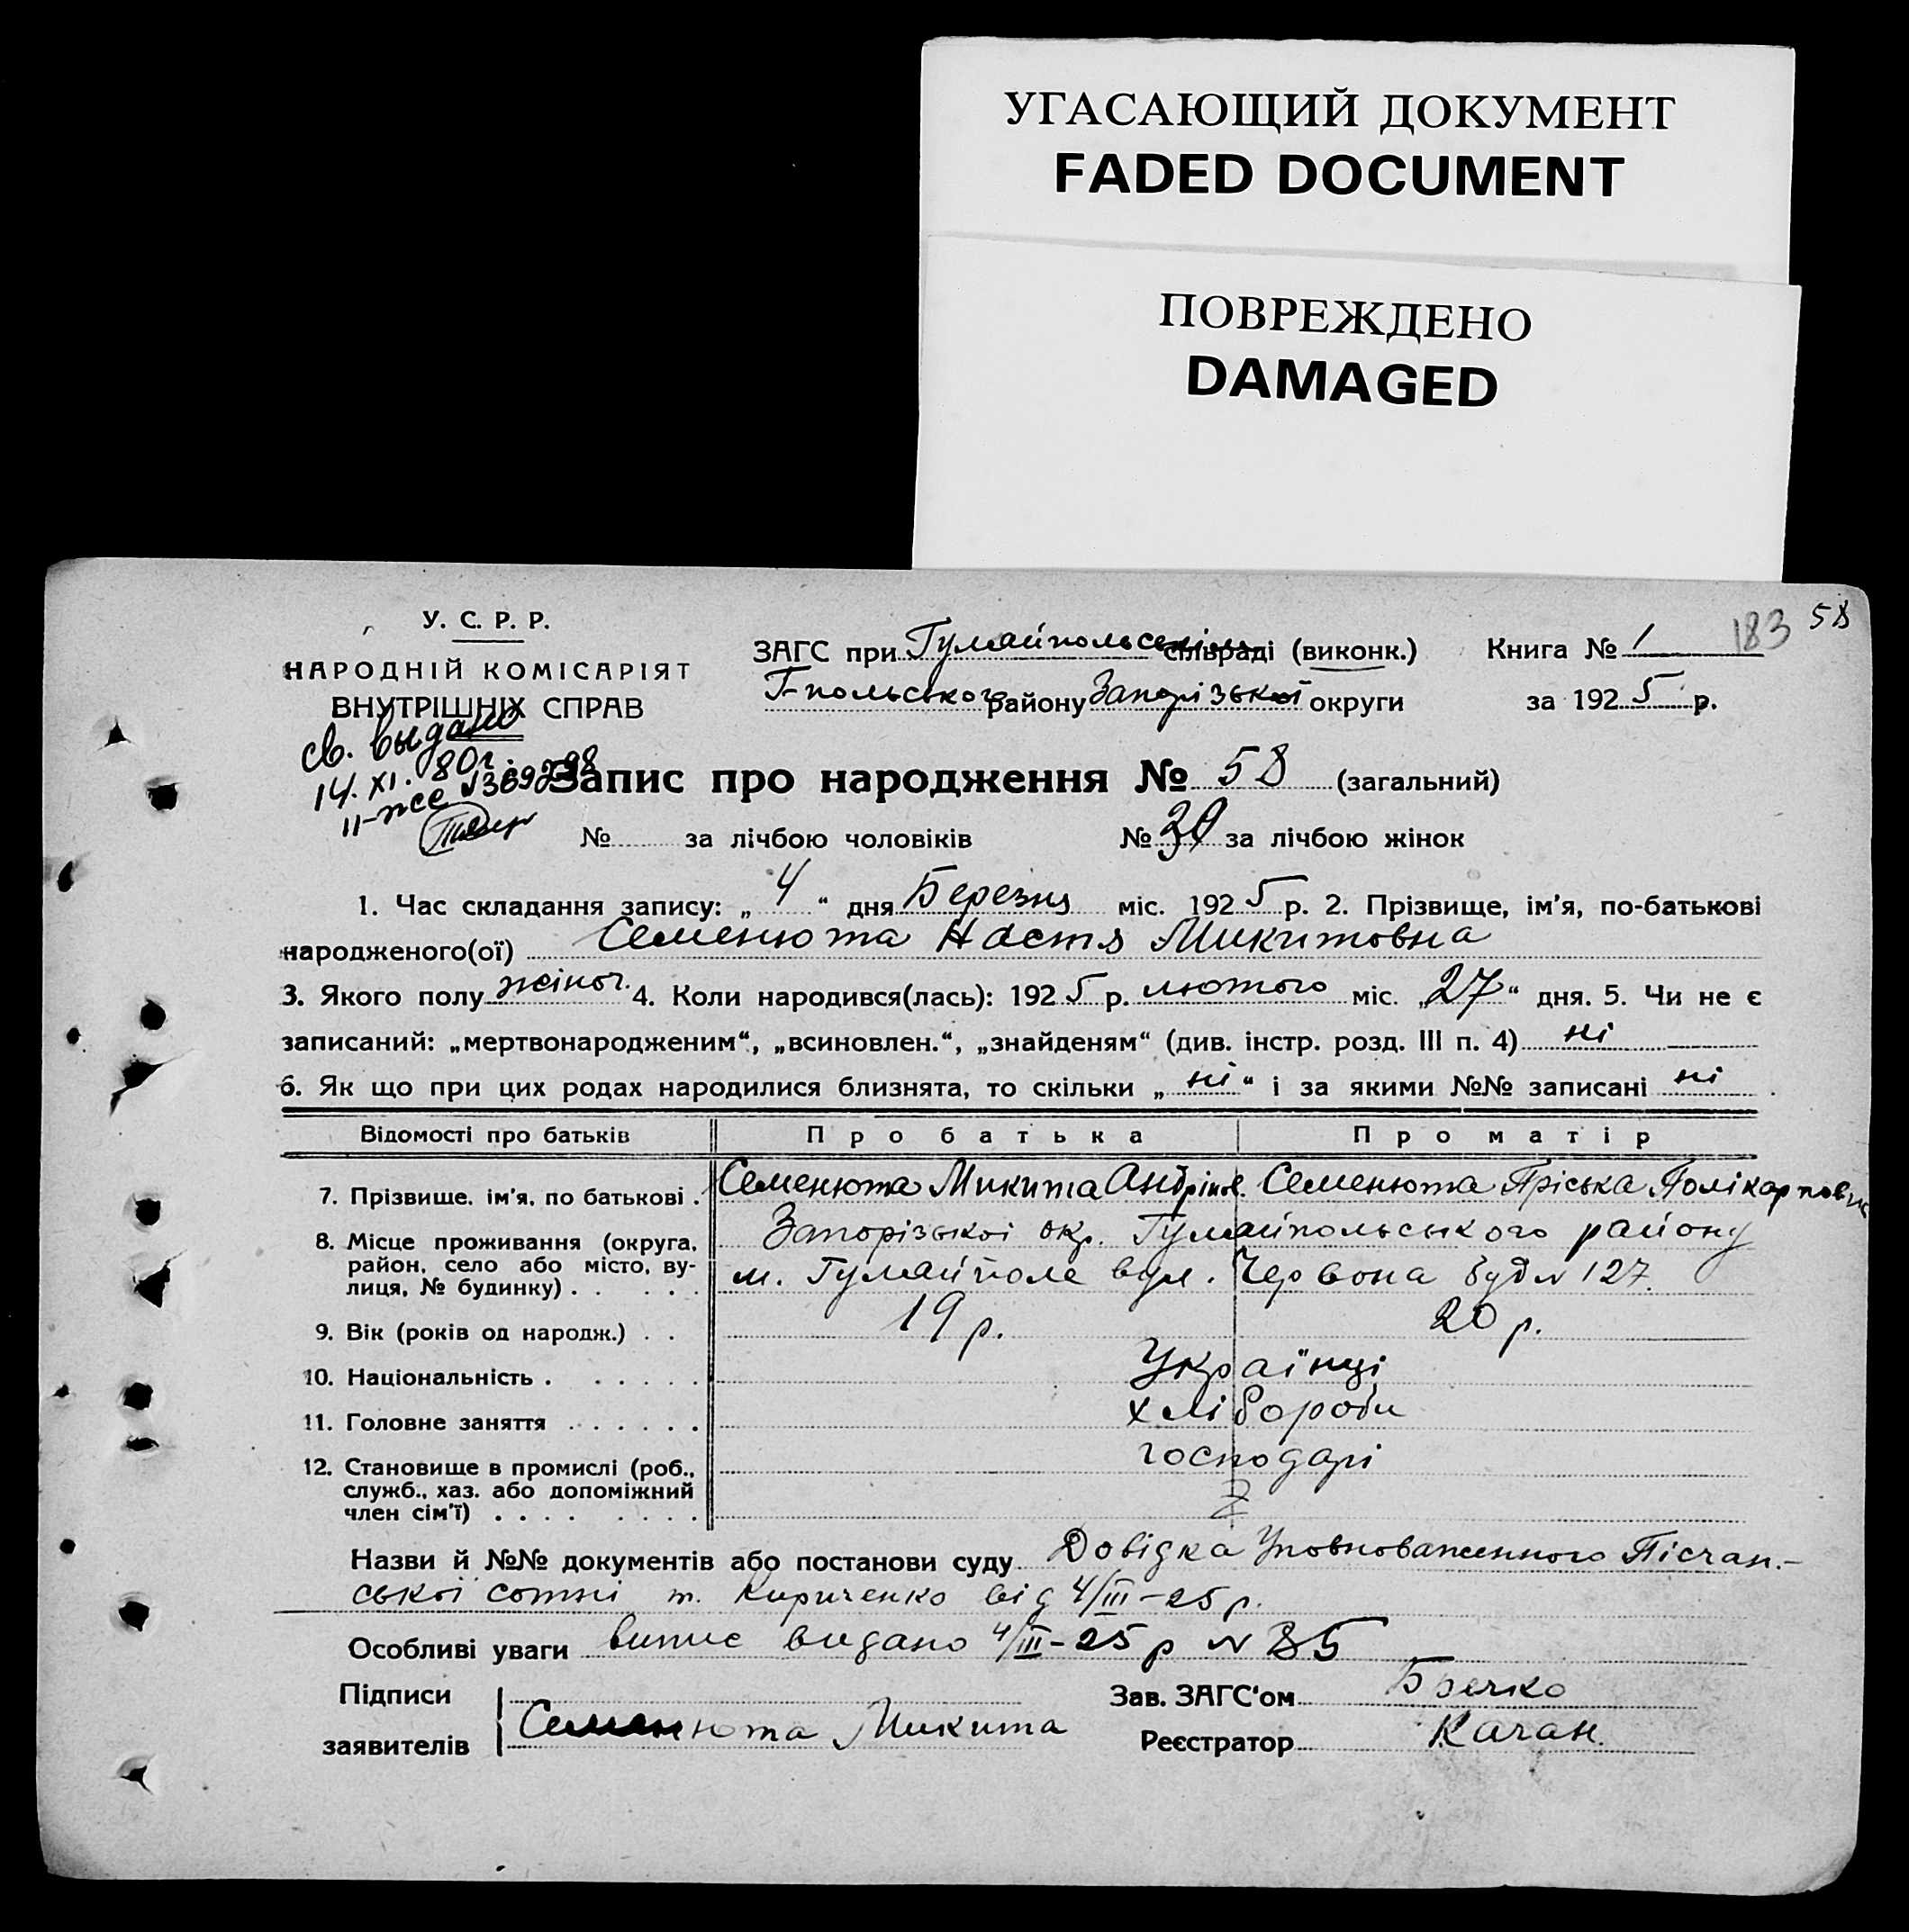 УГАСАЮЩИЙ ДОКУМЕНТ
FADED DOCUMENT
ПОВРЕЖДЕНО
DAMAGED
183 58
У. С. Р. Р.
НАРОДНІЙ КОМІСАРІЯТ
ВНУТРІШНІХ СПРАВ
ЗАГС при Гуляйпольськім сільраді (виконк.) Книга № 1
Г-польського району Запорізької округи за 1925 р.
св. выдано
14. XI. 80 г.
II-жс №369298
Запис про народження № 58 (загальний)
№ за лічбою чоловіків № 30 за лічбою жінок
1. Час складання запису: „ 4 “ дня Березня міс. 1925 р. 2. Прізвище, ім'я, по-батькові
народженого(ої) Семенюта Настя Микитовна
3. Якого полу жіноч. 4. Коли народився(лась): 1925 р. лютого міс. „27“ дня. 5. Чи не є
записаний: „мертвонародженим“, „всиновлен.“, „знайденям“ (див. інстр. розд. III п. 4) ні
6. Як що при цих родах народилися близнята, то скільки „ ні “ і за якими №№ записані ні
Відомості про батьків Про батька Про матір
7. Прізвище, ім'я, по батькові . Семенюта Микита Андріїв. Семенюта Пріська Полікарповна
8. Місце проживання (округа, Запорізької окр. Гуляйпольського району
район, село або місто, ву-
лиця, № будинку) . . . . . м. Гуляйполе вул. Червона буд № 127.
9. Вік (років од народж.) . . 19 р. 20 р.
10. Національність . . . . . . Українці
11. Головне заняття . . . . . . хлібороби
12. Становище в промислі (роб., господарі
служб., хаз. або допоміжний
член сім'ї) . . . . . . . .
Назви й №№ документів або постанови суду Довідка Уповноваженного Пісчан.-
ської сотні т. Кириченко від 4/III-25 р.
Особливі уваги випис видано 4/III-25 р № 35
Підписи Зав. ЗАГС'ом
заявителів Семенюта Микита Реєстратор Качан.